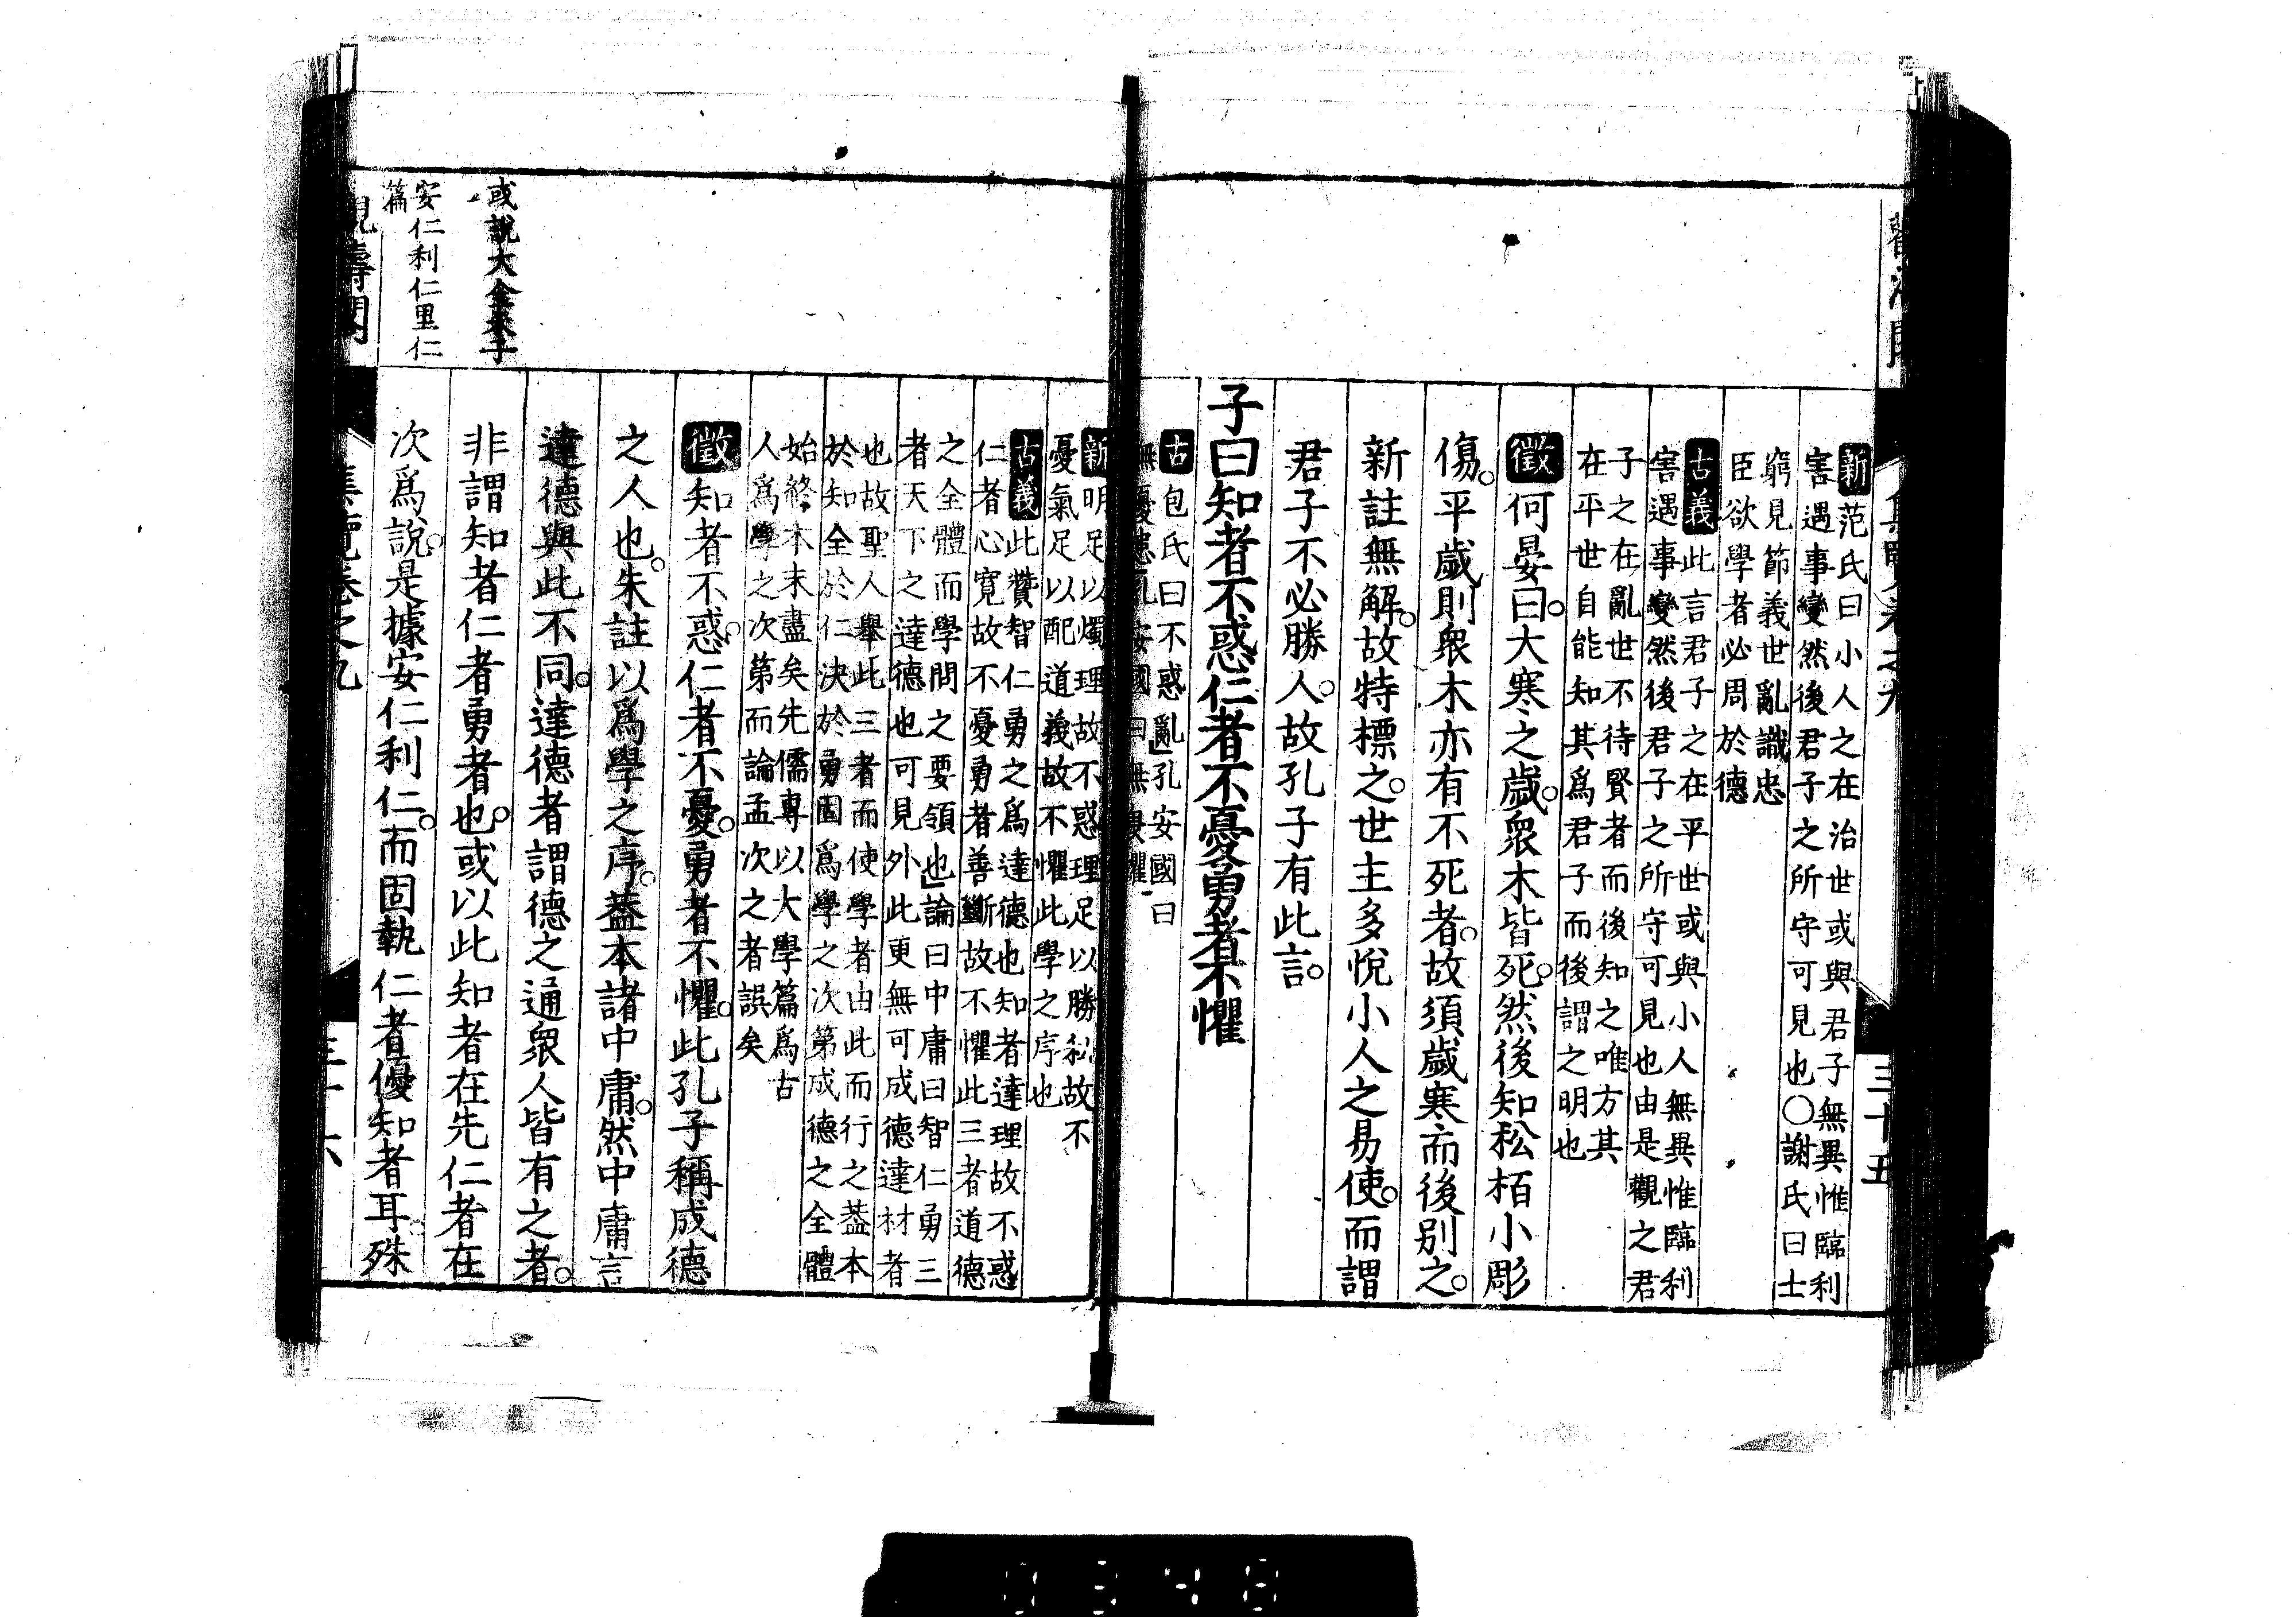 新范氏曰小人之在治世或與君子無異惟臨利
害遇事變然後君子之所守可見也〇謝氏曰士
窮見節義世亂識忠
臣欲學者必周於德
古義此言君子之在平世或與小人無異惟臨利
害遇事變然後君子之所守可見也由是觀之君
子之在亂世不待賢者而後知之唯方其
在平世自能知其爲君子而後謂之明也
徵何晏曰。大寒之歲。衆木皆死。然後知松栢小彫
傷。平歲則衆木亦有不死者。故須歲寒而後別之。
新註無解。故特標之。世主多悅小人之易使。而謂
君子不必勝人。故孔子有此言。
子曰知者不惑仁者不憂勇者不懼
古包氏曰不惑亂」孔安國曰
無憂患
三十五
新明足以燭理故不惑理足以勝私故不
憂氣足以配道義故不懼此學之序也
古義此贊智仁勇之爲達德也知者達理故不惑
仁者心寬故不憂勇者善斷故不懼此三者道德
之全體而學問之要領也」論曰中庸曰智仁勇三
者天下之達德也可見外此更無可成德達材者
也故聖人舉此三者而使學者由此而行之蓋本
於知全於仁決於勇固爲學之次第成德之全體
始終本末盡矣先儒專以大學篇爲古
人爲學之次第而論孟次之者誤矣
徵知者不惑。仁者不憂。勇者不懼。此孔子稱成德
之人也。朱註以爲學之序。蓋本諸中庸。然中庸言
達德與此不同。達德者謂德之通衆人皆有之者。
非謂知者仁者勇者也。或以此知者在先仁者在
次爲說。是據安仁利仁。而固執仁者優知者耳。殊
或說大全朱子
安仁利仁里仁
篇
集覽卷之九